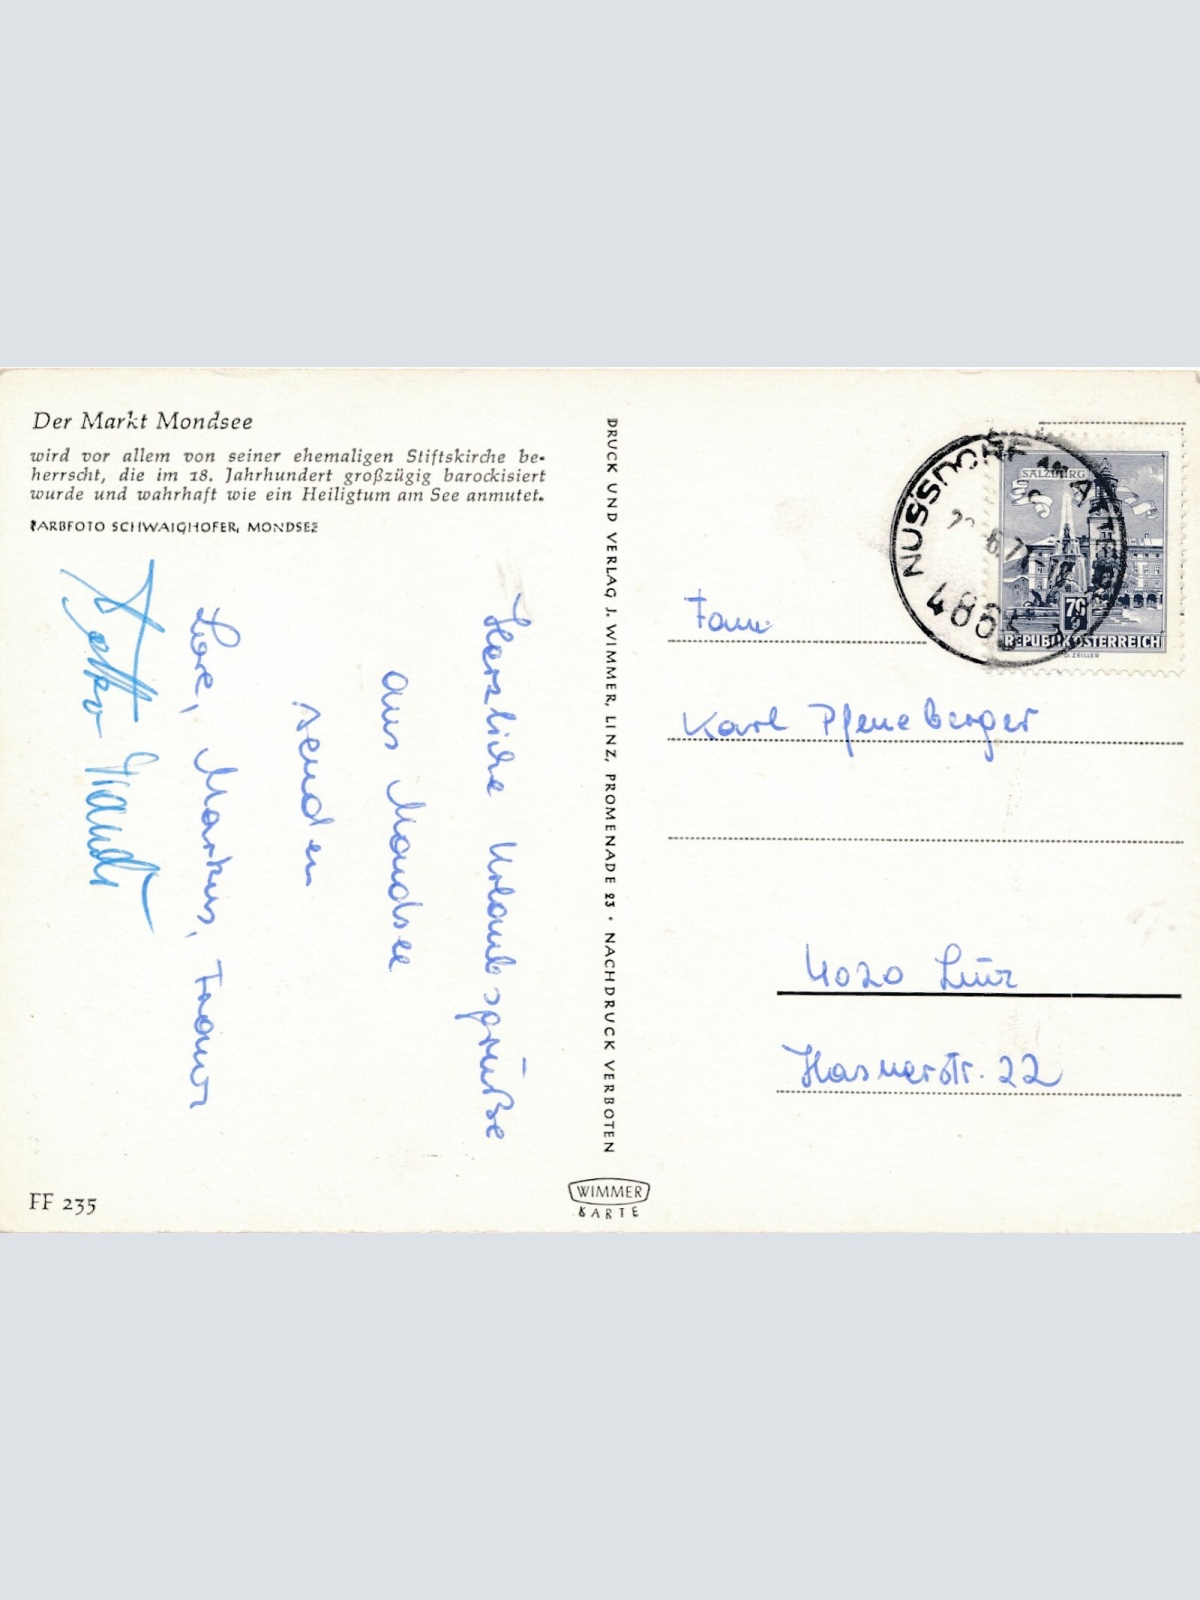 Der Markt Mondsee
wird vor allem von seiner ehemaligen Stiftskirche be-
herrscht, die im 18. Jahrhundert großzügig barockisiert
wurde und wahrhaft wie ein Heiligtum am See anmutet.
FARBFOTO SCHWAIGHOFER, MONDSEE
Herzliche Urlaubsgrüße
aus Mondsee
senden
Lore, Markus, Franz
FF 235
DRUCK UND VERLAG J. WIMMER, LINZ, PROMENADE 23 · NACHDRUCK VERBOTEN
WIMMER
KARTE
NUSSDORF AM ATTERSEE
4865
SALZBURG
70
REPUBLIK ÖSTERREICH
O. ZEILLER
Fam.
Karl Pfeneberger
4020 Linz
Hasnerstr. 22